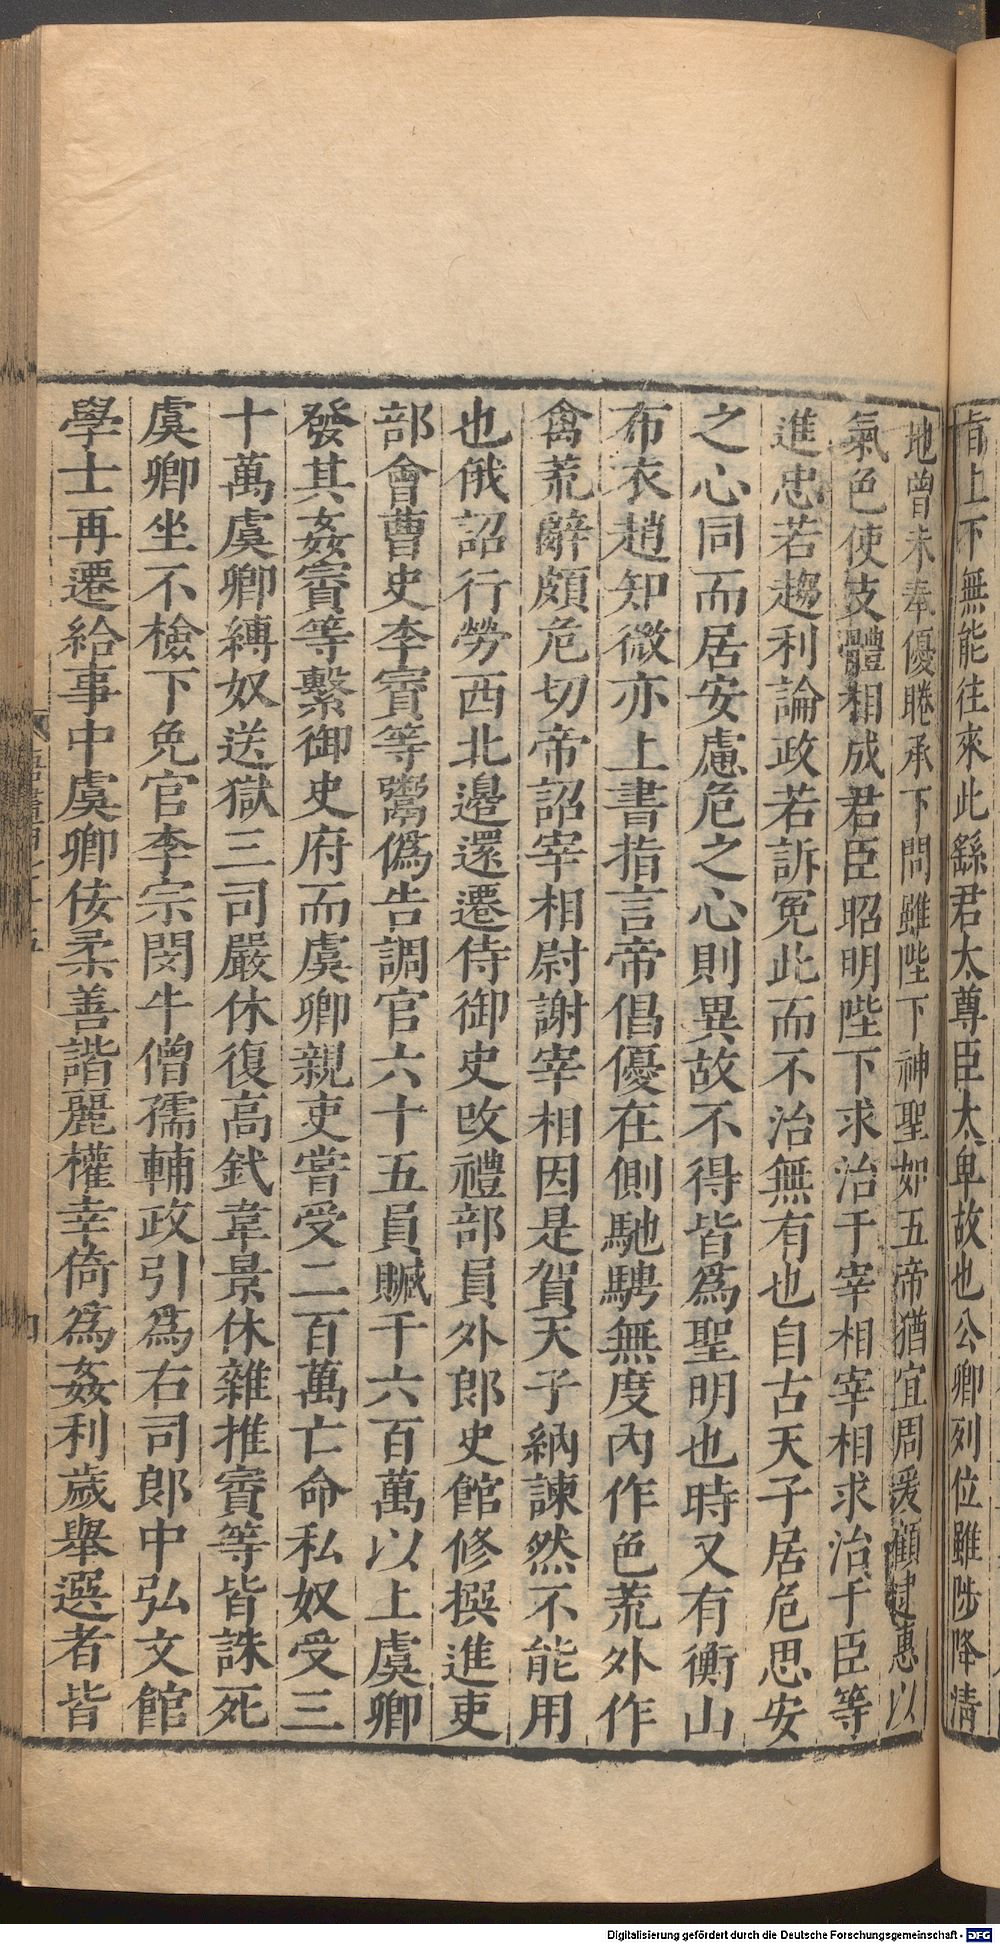 旨上下無能往來此繇君太尊臣太卑故也公卿列位雖陟降淸
地曾未奉優睠承下問雖陛下神聖如五帝猶宜周爰顧逮惠以
氣色使支體相成君臣昭明陛下求治于宰相宰相求治于臣等
進忠若趨利論政若訴冤此而不治無有也自古天子居危思安
之心同而居安慮危之心則異故不得皆爲聖明也時又有衡山
布衣趙知微亦上書指言帝倡優在側馳騁無度內作色荒外作
禽荒辭頗危切帝詔宰相尉謝宰相因是賀天子納諫然不能用
也俄詔行勞西北邊還遷侍御史改禮部員外郎史館修撰進吏
部會曹史李賨等鬻僞告調官六十五員贓千六百萬以上虞卿
發其姦賨等繫御史府而虞卿親吏嘗受二百萬亡命私奴受三
十萬虞卿縛奴送獄三司嚴休復高釴韋景休雜推賨等皆誅死
虞卿坐不檢下免官李宗閔牛僧孺輔政引爲右司郎中弘文館
學士再遷給事中虞卿佞柔善諧麗權幸倚爲姦利歲舉選者皆
Digitalisierung gefördert durch die Deutsche Forschungsgemeinschaft - DFG